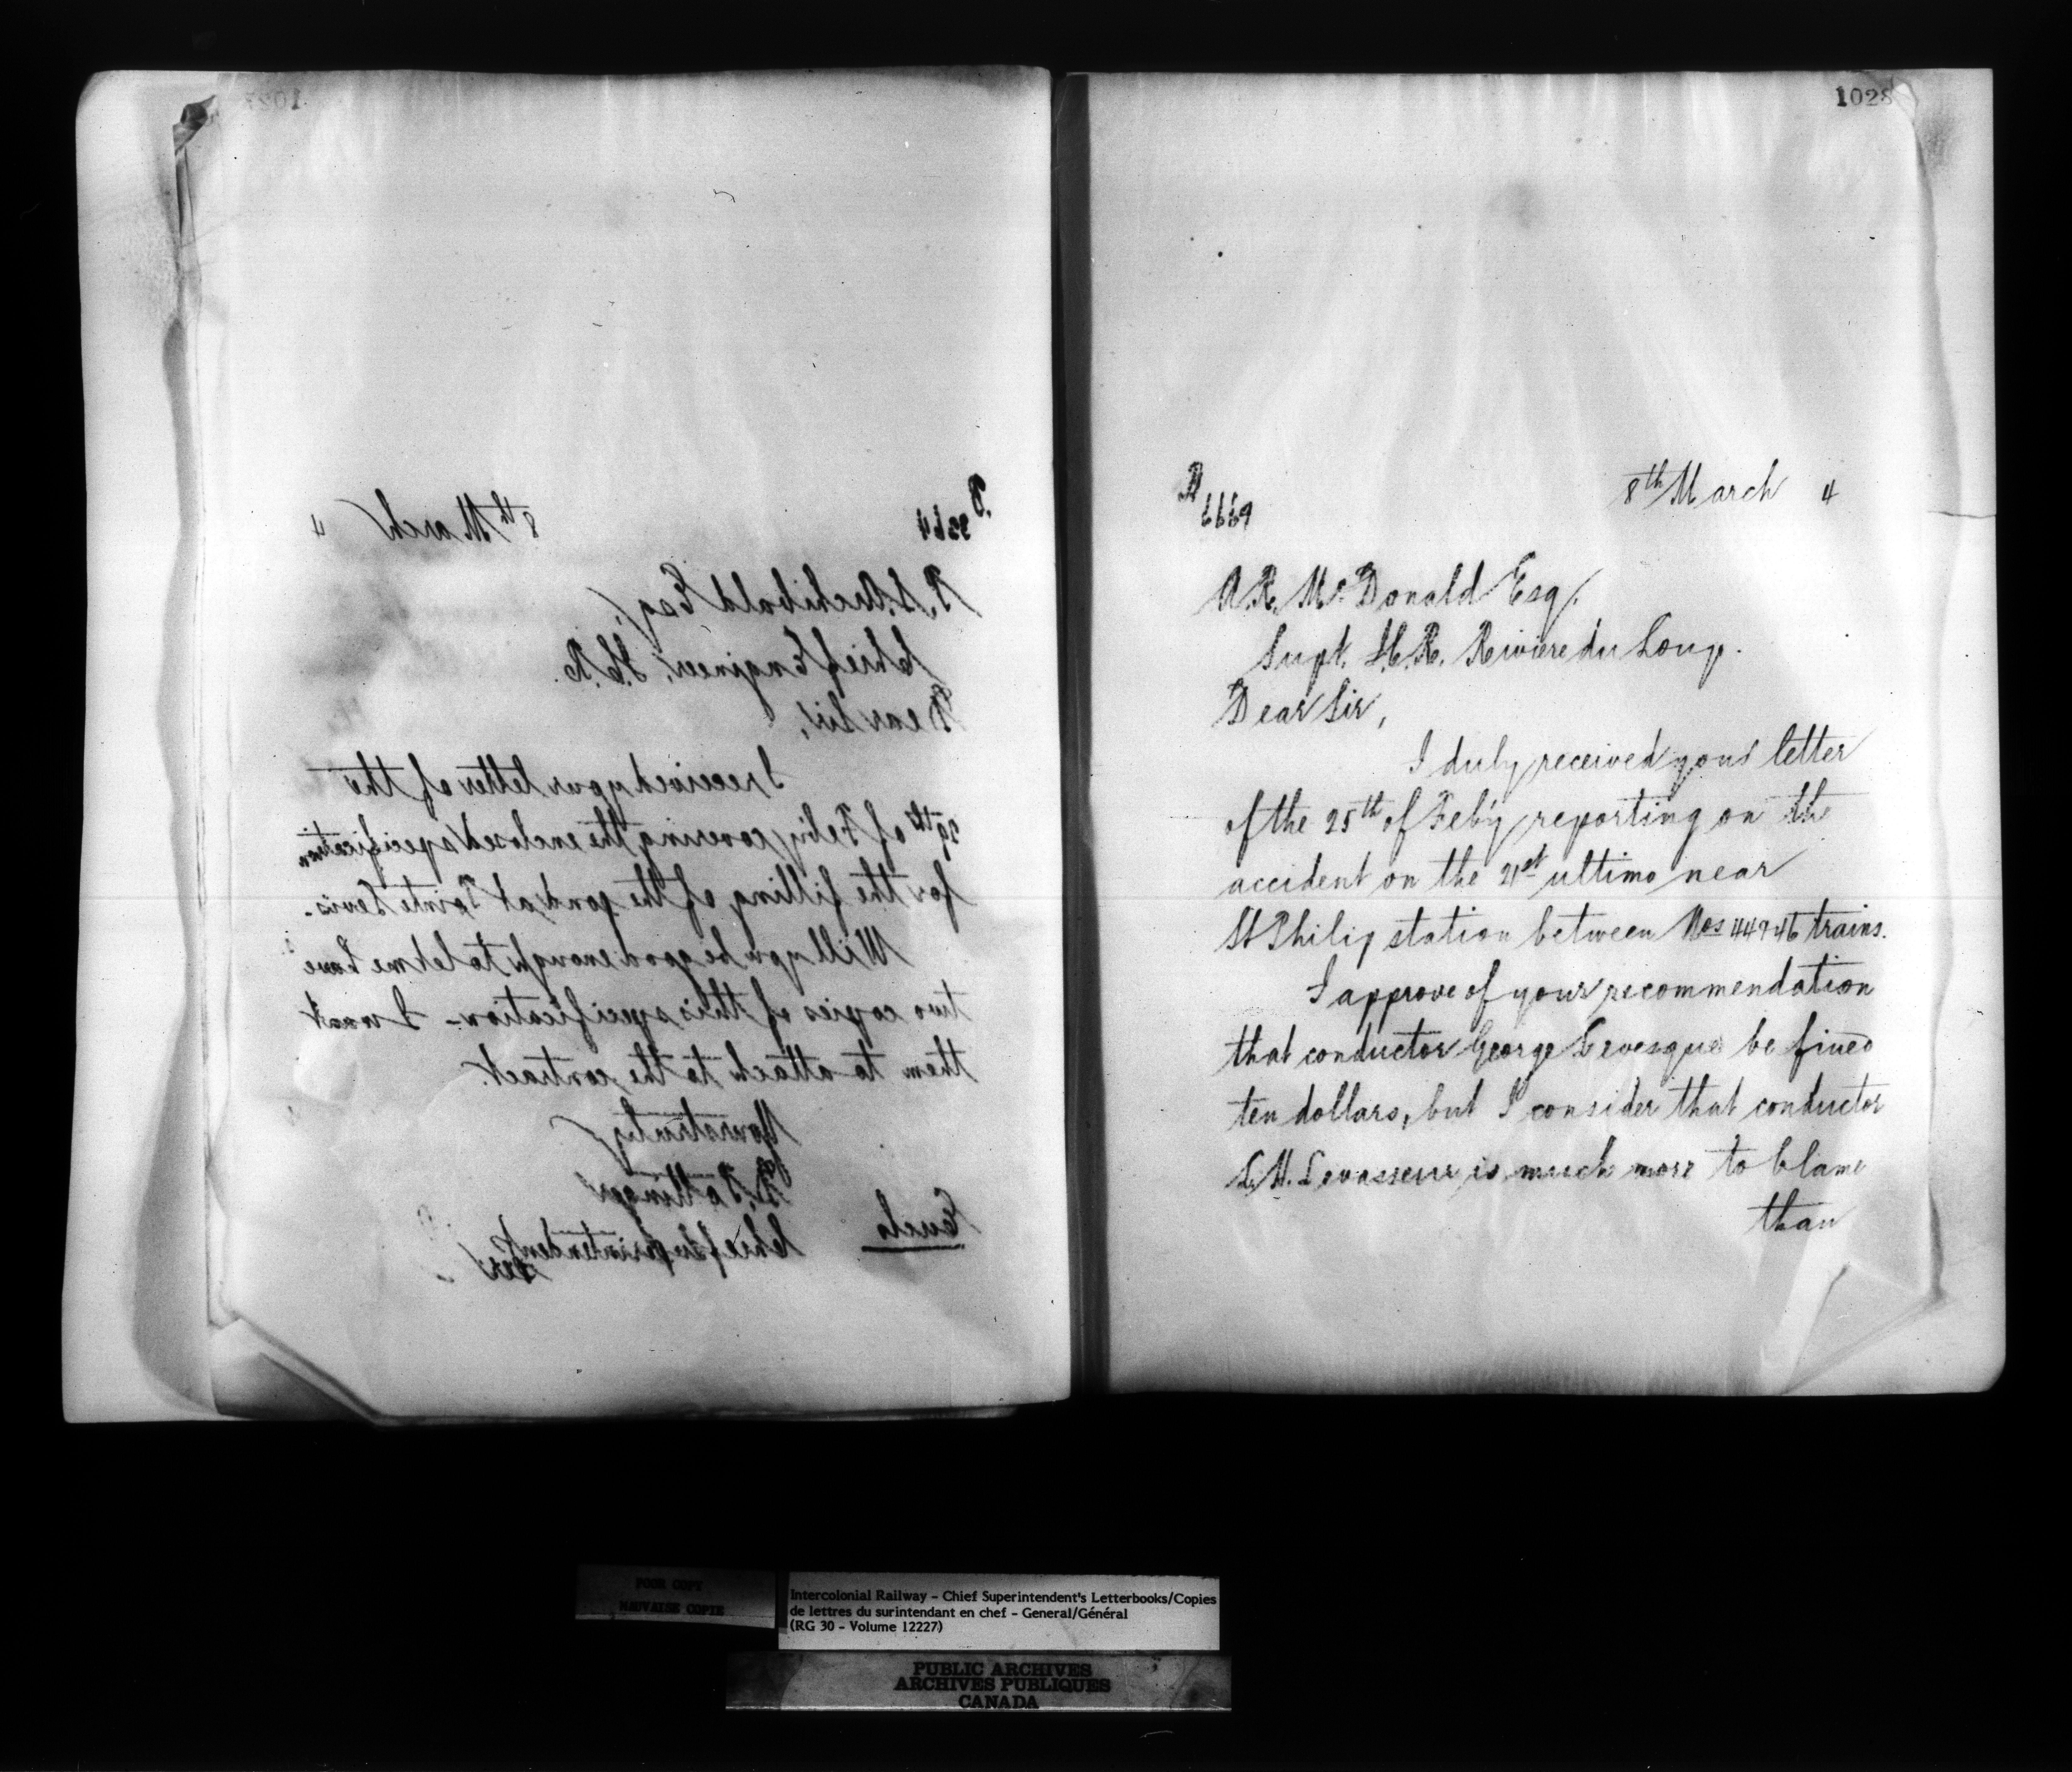 1027
P. 9364
8th March 4
P. S. Archibald Esq.
Chief Engineer, I.C.R.
Dear Sir,
I received your letter of the
29th of Feby covering the enclosed specification
for the filling of the pond at Pointe Levis.
Will you be good enough to let me have
two copies of this specification - I want
them to attach to the contract.
Yours truly
D. Pottinger
Chief Superintendent
Per
Encls
1028
8th March 4
6669
A. R. McDonald Esq.
Supt. I.C.R. Riviere du Loup.
Dear Sir,
I duly received your letter
of the 25th of Feby reporting on the
accident on the 21st ultimo near
St Philip station between Nos 44 & 46 trains.
I approve of your recommendation
that conductor George Levesque be fined
ten dollars, but I consider that conductor
L. H. Levasseur is much more to blame
than
POOR COPY
MAUVAISE COPIE
Intercolonial Railway - Chief Superintendent's Letterbooks/Copies
de lettres du surintendant en chef - General/Général
(RG 30 - Volume 12227)
PUBLIC ARCHIVES
ARCHIVES PUBLIQUES
CANADA